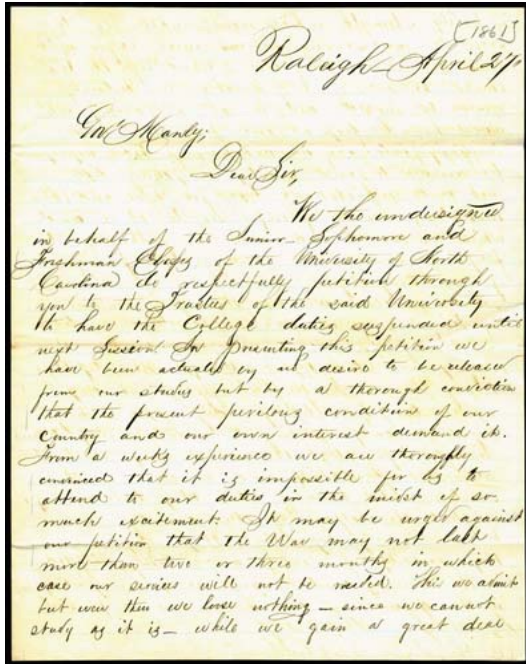 [1861]
Raleigh April 27
Gov Manly;
Dear Sir,
We the undersigned
in behalf of the Junior Sophomore and
Freshman Classes of the University of North
Carolina do respectfully petition through
you to the Trustees of the said University
to have the College duties suspended until
next Session In presenting this petition we
have been actuated by no desire to be released
from our studies but by a thorough conviction
that the present perilous condition of our
Country and our own interest demand it.
From a weeks experience we are thoroughly
convinced that it is impossible for us to
attend to our duties in the midst of so
much excitement. It may be urged against
our petition that the War may not last
more than two or three months in which
case our services will not be needed. This we admit
but even then we loose nothing – since we cannot
study as it is – while we gain a great deal